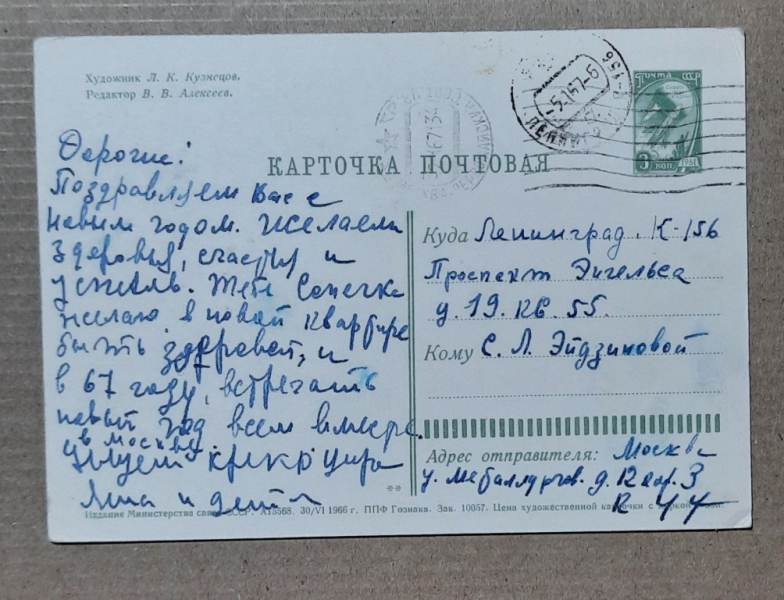 Художник Л. К. Кузнецов.
Редактор В. В. Алексеев.
ПОЧТА СССР
3 КОП. 1961
КАРТОЧКА ПОЧТОВАЯ
Дорогие!
Поздравляем Вас с
новым годом. Желаем
здоровья, счастья и
успехов. Тебе Сонечка
желаю в новой квартире
быть здоровой, и
в 67 году, встречать
новый год всем вместе.
в Москве.
Целуем крепко
и дети
Куда Ленинград. К-156
Проспект Энгельса
д. 19. кв. 55.
Кому С. Л. Эйдзиновой
Адрес отправителя: Москва
у. Металлургов. д. 12 кор. 3
к 44
Издание Министерства связи СССР. 30/VI 1966 г. ППФ Гознака. Зак. 10057. Цена художественной карточки с маркой